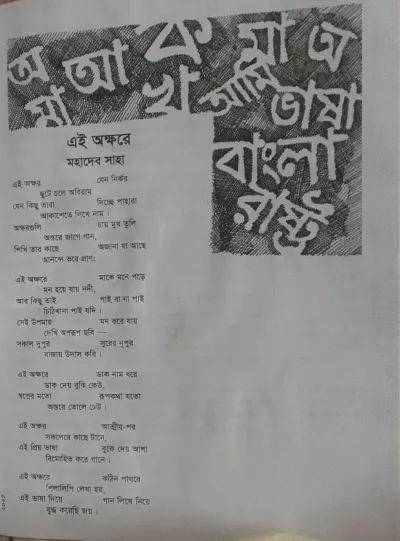 অ আ ক মা অ
মা খ আমি ভাষা
বাংলা
রাষ্ট্র
এই অক্ষরে
মহাদেব সাহা
এই অক্ষর যেন নির্ঝর
ছুটে চলে অবিরাম
যেন কিছু তারা দিচ্ছে পাহারা
আকাশেতে লিখে নাম।
অক্ষরগুলি চায় মুখ তুলি
অন্তরে জাগে গান,
শিখি তার কাছে অজানা যা আছে
আনন্দে ভরে প্রাণ।
এই অক্ষরে মাকে মনে পড়ে
মন হয়ে যায় নদী,
আর কিছু তাই পাই বা না পাই
চিঠিখানা পাই যদি।
সেই উপমায় মন ভরে যায়
দেখি অপরূপ ছবি —
সকাল দুপুর সুরের নূপুর
বাজায় উদাস কবি।
এই অক্ষরে ডাক নাম ধরে
ডাক দেয় বুঝি কেউ,
স্বপ্নের মতো রূপকথা যতো
অন্তরে তোলে ঢেউ।
এই অক্ষর আত্মীয়-পর
সকলেরে কাছে টানে,
এই প্রিয় ভাষা বুকে দেয় আশা
বিমোহিত করে গানে।
এই অক্ষরে কঠিন পাথরে
শিলালিপি লেখা হয়,
এই ভাষা দিয়ে গান লিখে নিয়ে
যুদ্ধ করেছি জয়।